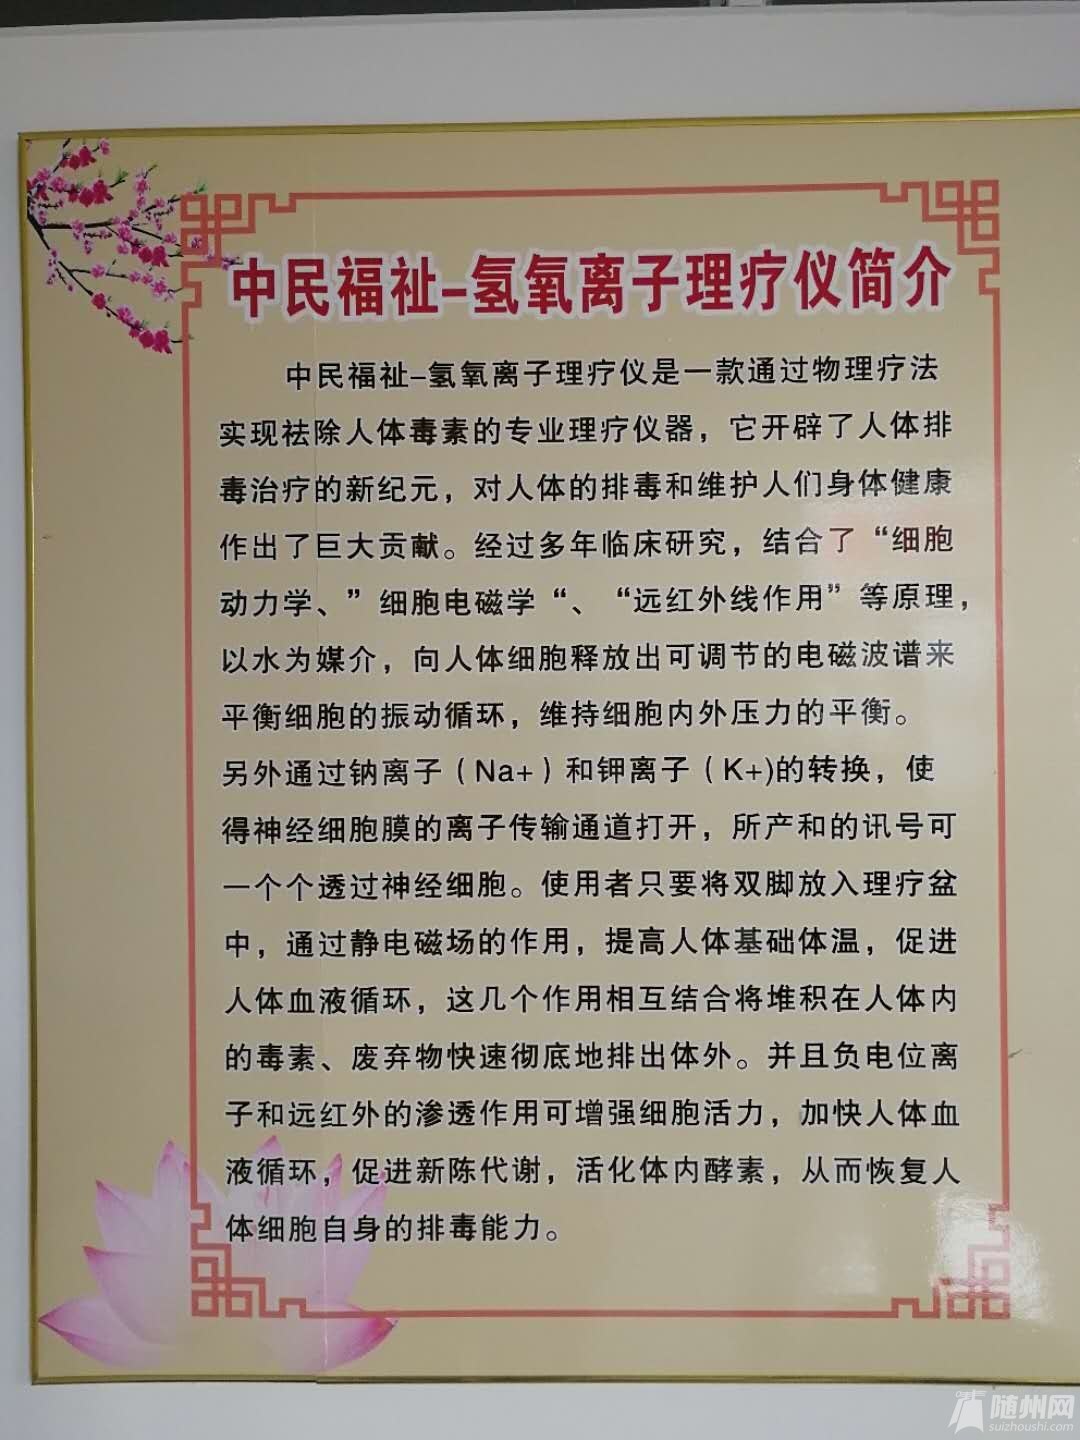 中民福祉-氢氧离子理疗仪简介
中民福祉-氢氧离子理疗仪是一款通过物理疗法
实现祛除人体毒素的专业理疗仪器，它开辟了人体排
毒治疗的新纪元，对人体的排毒和维护人们身体健康
作出了巨大贡献。经过多年临床研究，结合了“细胞
动力学、”细胞电磁学“、“远红外线作用”等原理，
以水为媒介，向人体细胞释放出可调节的电磁波谱来
平衡细胞的振动循环，维持细胞内外压力的平衡。
另外通过钠离子（Na+）和钾离子（K+)的转换，使
得神经细胞膜的离子传输通道打开，所产和的讯号可
一个个透过神经细胞。使用者只要将双脚放入理疗盆
中，通过静电磁场的作用，提高人体基础体温，促进
人体血液循环，这几个作用相互结合将堆积在人体内
的毒素、废弃物快速彻底地排出体外。并且负电位离
子和远红外的渗透作用可增强细胞活力，加快人体血
液循环，促进新陈代谢，活化体内酵素，从而恢复人
体细胞自身的排毒能力。
随州网
suizhoushi.com